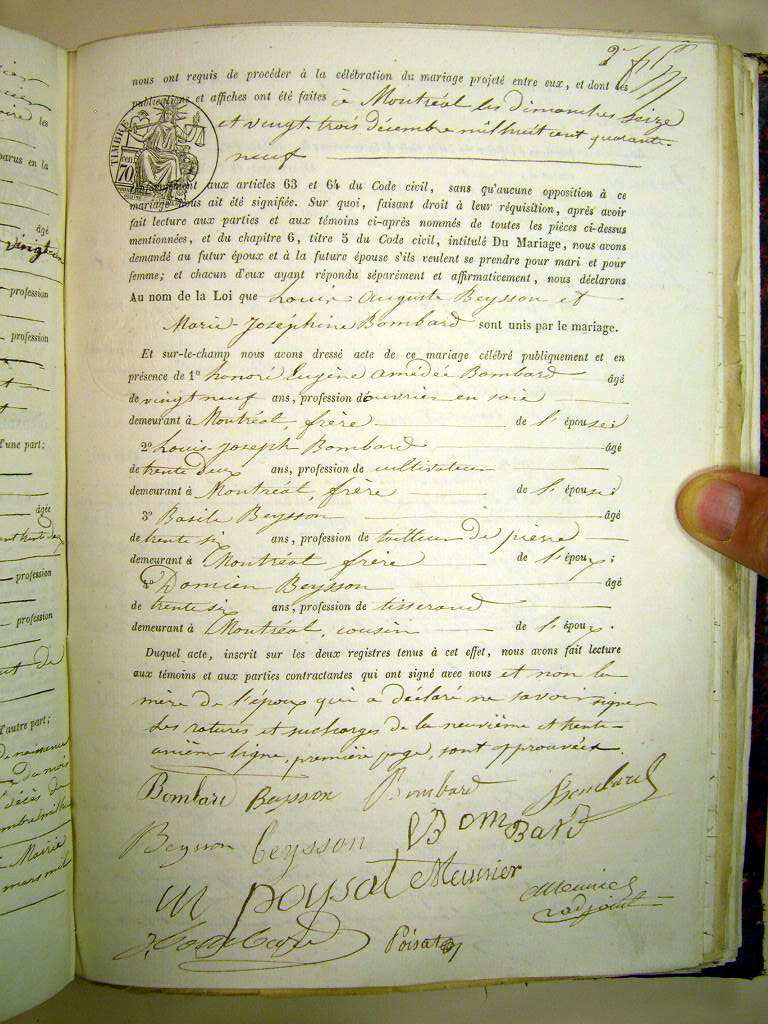 nous ont requis de procéder à la célébration du mariage projeté entre eux, et dont les
publications et affiches ont été faites à Montréal les dimanches seize
et vingt-trois décembre mil huit cent quarante-
neuf
TIMBRE
70
Conformément aux articles 63 et 64 du Code civil, sans qu'aucune opposition à ce
mariage nous ait été signifiée. Sur quoi, faisant droit à leur réquisition, après avoir
fait lecture aux parties et aux témoins ci-après nommés de toutes les pièces ci-dessus
mentionnées, et du chapitre 6, titre 5 du Code civil, intitulé Du Mariage, nous avons
demandé au futur époux et à la future épouse s'ils veulent se prendre pour mari et pour
femme; et chacun d'eux ayant répondu séparément et affirmativement, nous déclarons
Au nom de la Loi que Louis-Auguste Beysson et
Marie-Joséphine Bombard sont unis par le mariage.
Et sur-le-champ nous avons dressé acte de ce mariage célébré publiquement et en
présence de 1º honoré Eugène Amédée Bombard âgé
de vingt neuf ans, profession d'ouvrier en soie
demeurant à Montréal, frère de l'épouse;
2º Louis-Joseph Bombard âgé
de trente deux ans, profession de cultivateur
demeurant à Montréal, frère de l'épouse;
3º Basile Beysson âgé
de trente six ans, profession de tailleur de pierre
demeurant à Montréal, frère de l'époux;
4º Damien Beysson âgé
de trente six ans, profession de tisserand
demeurant à Montréal, cousin de l'époux.
Duquel acte, inscrit sur les deux registres tenus à cet effet, nous avons fait lecture
aux témoins et aux parties contractantes qui ont signé avec nous et non la
mère de l'époux qui a déclaré ne savoir signer
Les ratures et surcharges de la neuvième et trente-
unième ligne, première page, sont approuvées.
Bombard Beysson Bombard Bombard
Beysson beysson Bombard
poysat Meunier Meunier
adjoint
Poisat
âgé
vingt-un
profession
profession
d'une part;
âgée
profession
profession
d'autre part;